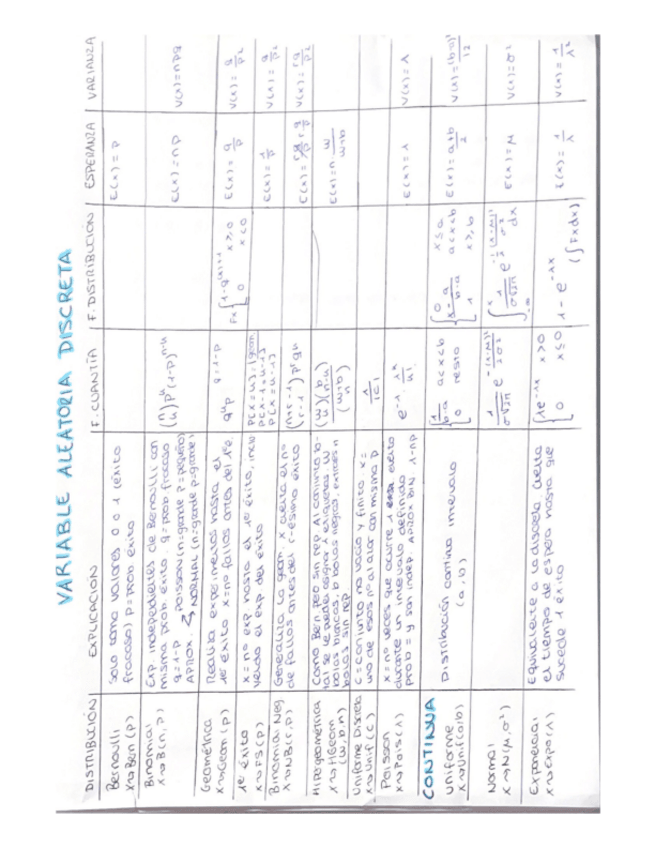 VARIABLE ALEATORIA DISCRETA
DISTRIBUCIÓN | EXPLICACIÓN | F. CUANTÍA | F. DISTRIBUCIÓN | ESPERANZA | VARIANZA
Bernoulli
X~Bern (p)
Solo toma valores 0 o 1 (éxito
fracaso) p = prob éxito
E(x) = p
Binomial
X~B(n, p)
Exp independientes de Bernoulli con
misma prob. éxito. q = prob fracaso
q = 1-p POISSON (n = grande p = pequeño)
APROX. NORMAL (n = grande p = grande)
(n u) p^u (1-p)^n-u
E(x) = np
V(x) = npq
Geométrica
X~Geom (p)
Realiza experimentos hasta el
1e éxito x = nº fallos antes del 1e
q^u p q = 1-p
Fx { 1-q^(x)+1 x ≥ 0
0 x < 0
E(x) = q/p
V(x) = q/p²
1e éxito
X~FS(p)
x = nº exp hasta el 1e éxito, inclu
yendo el exp del éxito
E(x) = 1/p
V(x) = q/p²
Binomial Neg
X~NB(r, p)
Generaliza la geom. x cuenta el nº
de fallos antes del r-esimo éxito
(n+r-1 r-1) p^r q^u
V(x) = rq/p²
Hipergeométrica
X~HGeom
(w, b, n)
Como Ben pero sin rep Al conjunto to-
tal se le puede asignar 2 etiquetas. w
bolas blancas, b bolas negras, extraes n
bolas sin rep
(w u)(b n-u)
(w+b n)
E(x) = n w/w+b
Uniforme Discreta
X~Unif (C)
C = conjunto no vacío y finito x =
uno de esos nº al azar con misma p
1/|C|
Poisson
X~Pois (λ)
x = nº veces que ocurre 1 éxito
durante un intervalo definido
prob = y son indep. APROX BIN λ = np
e^-λ · λ^x/u!
E(x) = λ
V(x) = λ
CONTINUA
Uniforme
X~Unif(a,b)
Distribución continua intervalo
(a, b)
{ 1/b-a a<x<b
0 resto
{ 0 x ≤ a
x-a/b-a a<x<b
1 x ≥ b
E(x) = a+b/2
V(x) = (b-a)²/12
Normal
X~N(μ, σ²)
1/σ√2π e^-(x-μ)²/2σ²
E(x) = μ
V(x) = σ²
Exponencial
X~Expo(λ)
Equivalente a la discreta. Cuenta
el tiempo de espera hasta que
suceda 1 éxito
{ λe^-λx x > 0
0 x ≤ 0
1 - e^-λx
(∫Fxdx)
E(x) = 1/λ
V(x) = 1/λ²